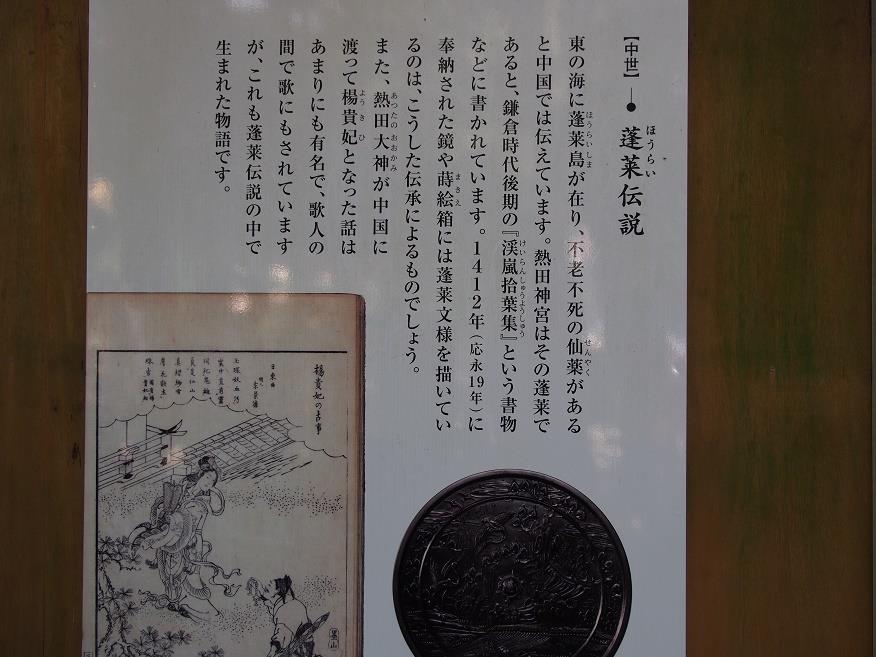 【中世】
蓬莱伝説
ほうらい
東の海に蓬莱島が在り、不老不死の仙薬がある
ほうらいしま
せんやく
と中国では伝えています。熱田神宮はその蓬莱で
あると、鎌倉時代後期の『渓嵐拾葉集』という書物
けいらんしゅうようしゅう
などに書かれています。1412年(応永19年)に
奉納された鏡や蒔絵箱には蓬莱文様を描いてい
まきえ
るのは、こうした伝承によるものでしょう。
また、熱田大神が中国に
あつたのおおかみ
渡って楊貴妃となった話は
ようきひ
あまりにも有名で、歌人の
間で歌にもされています
が、これも蓬莱伝説の中で
生まれた物語です。
楊貴妃の古事